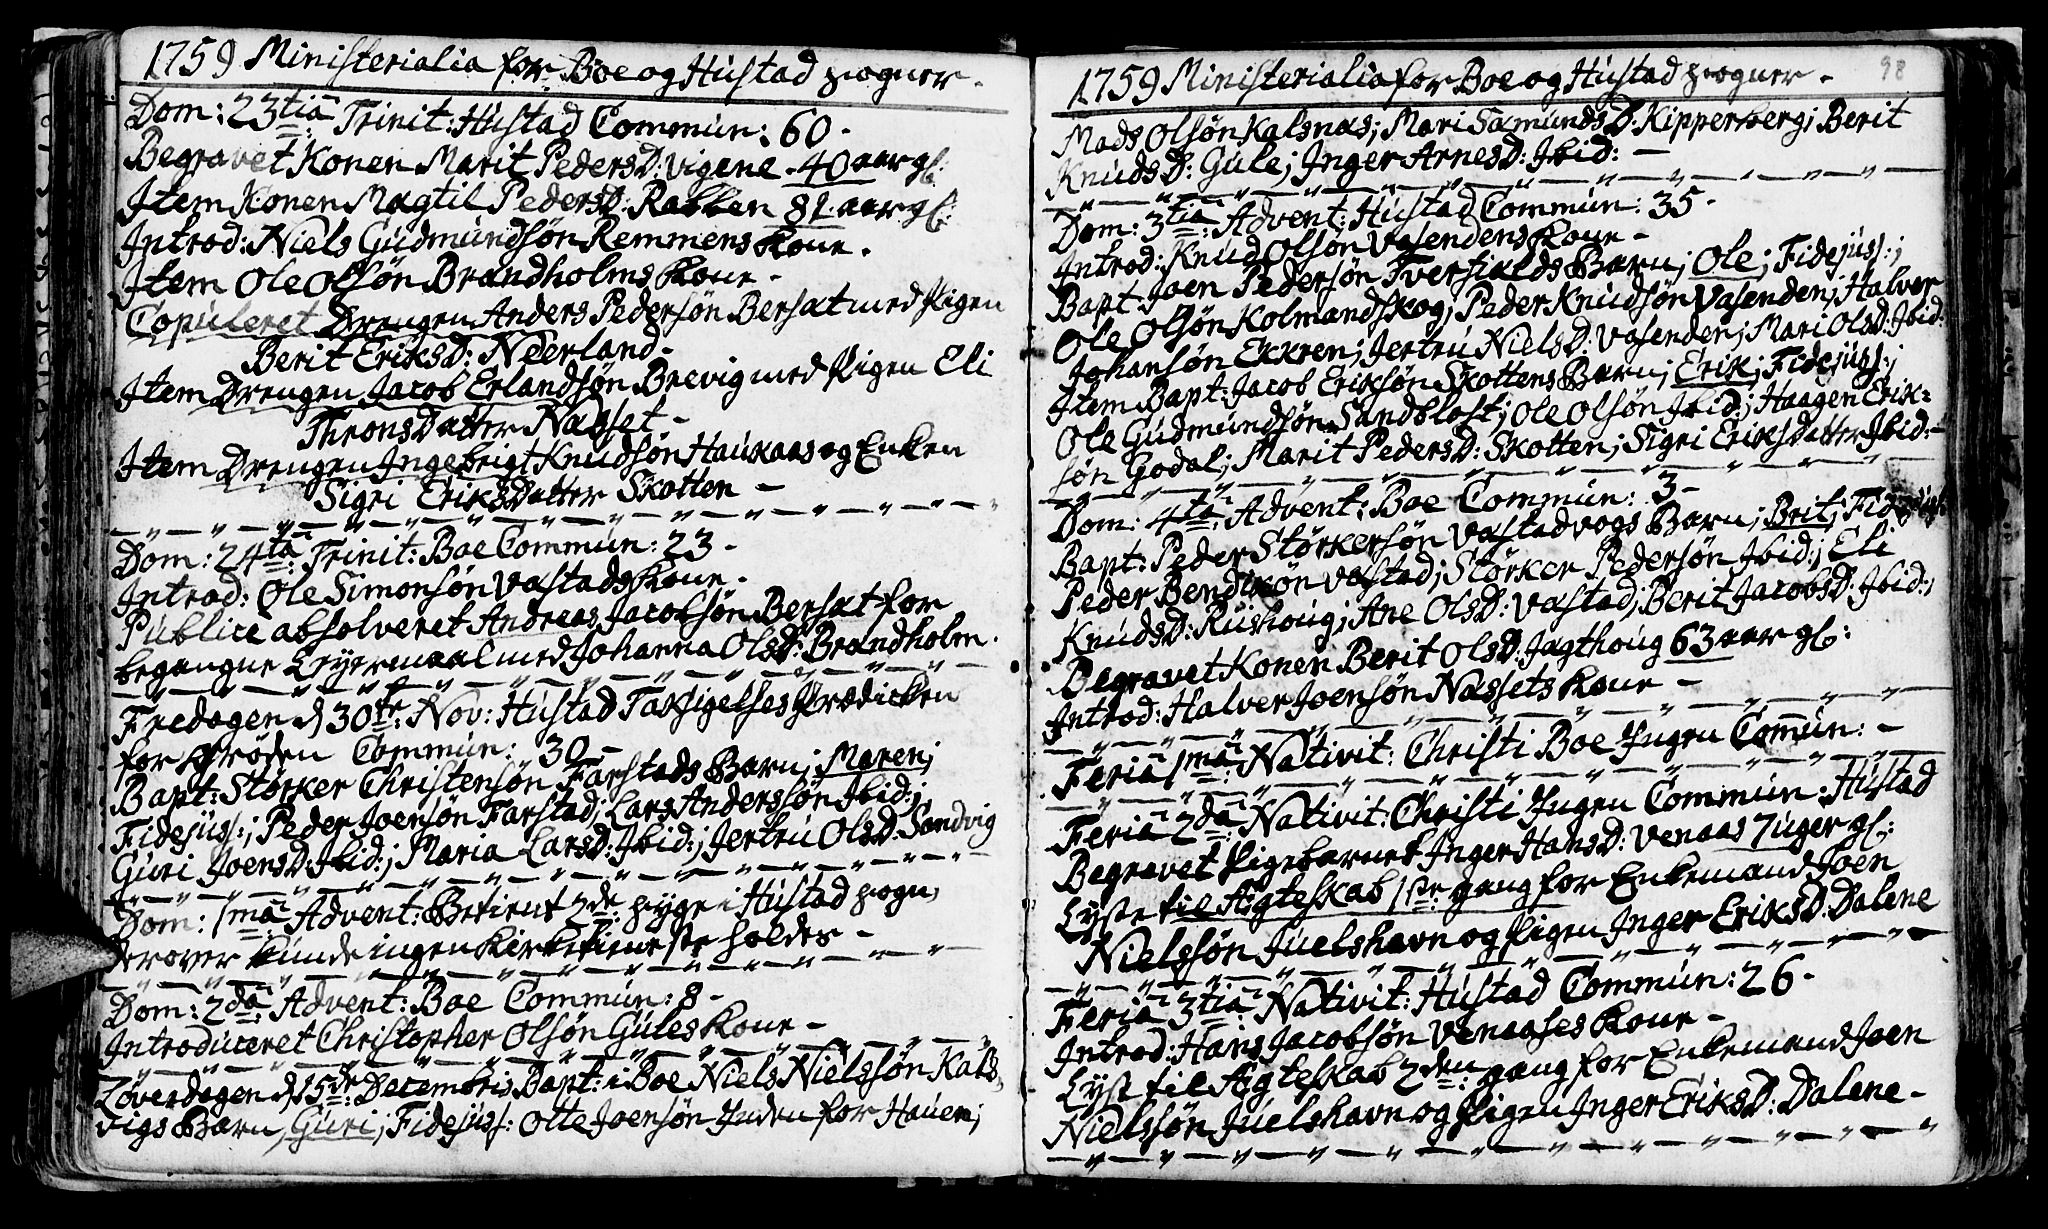 1759 Ministerialia for Boe og Hústad sogner.
Dom: 23tia Trinit: Hústad Commún: 60.
Begravet Konen Marit PedersD: Vigene. 40 aar gl:
Item Konen Magtil PedersD: Rabben 81 aar gl:
Introd: Niels Gúdmúndsøn Remmens Kone.
Item Ole Olsøn Brandholms Kone.
Copúleret Drengen Anders Pedersøn Bersæt med Pigen
Berit EriksD: Neerland.
Item Drengen Jacob Erlandsøn Brevig med Pigen Eli
ThronsDatter Næsset.
Item Drengen Ingebrigt Knúdsøn Haúkaas og Enken
Sigri EriksDatter Skotten -
Dom: 24ta Trinit: Boe Commún: 23.
Introd: Ole Simonsøn Vastads Kone.
Públice absolveret Andreas Jacobsøn Bersæt for
begangne Leyermaal med Johanna OlsD: Brandholm.
Fredagen d 30te: Nov: Hústad Taksigelses Prædicken
for Grøden Commún: 30 -
Bapt: Størker Christensøn Farstads Barn; Maren;
Fidejúss:; Peder Joensøn Farstad; Lars Anderssøn Ibid:;
Gúri JoensD: Ibid:; Maria LarsD: Ibid:; Jertrú OlsD: Sandvig
Dom: 1ma Advent: Betient 2de syge i Hústad sogn,
derover kúnde ingen Kirketieneste holdes -
Dom: 2da Advent: Boe Commún: 8 -
Introdúceret Christopher Olsøn Gúles Kone -
Løverdagen d 15de: Decembris Bapt: i Boe Niels Nielssøn Kals-
vigs Barn, Gúri; Fidejúss: Otte Joensøn Inden for Haúen;
1759 Ministerialia for Boe og Hústad sogner. 98
Mads Olsøn Kalsnæs; Mari SæmúndsD: Kipperberg; Berit
KnúdsD: Gúle; Inger ArnesD: Ibid: -
Dom: 3tia: Advent: Hústad Commún: 35.
Introd: Knúd Olsøn Vasendens Kone -
Bapt: Joen Pedersøn Tverfialds Barn; Ole; Fidejúss:;
Ole Olsøn Kolmandskog; Peder Knúdsøn Vasenden; Halver
Johansøn Ekkren; Jertrú NielsD: Vasenden; Mari OlsD: Ibid:
Item Bapt: Jacob Eriksøn Skottens Barn; Erik; Fidejúss:;
Ole Gúdmúndsøn Sandblost; Ole Olsøn Ibid:; Haagen Erik-
søn Godal; Marit PedersD: Skotten; Sigri EriksDatter Ibid: -
Dom: 4ta Advent: Boe Commún: 3 -
Bapt: Peder Størkersøn Vastadvogs Barn; Brit;
Peder Bendtsøn Vastad; Størker Pedersøn Ibid:; Eli
KnúdsD: Rúshoúg; Ane OlsD: Vastad; Berit JacobsD: Ibid:;
Begravet Konen Berit OlsD: Jagthoúg 63 aar gl:
Introd: Halver Joensøn Næssets Kone -
Feria 1ma: Nativit: Christi Boe Ingen Común: -
Feria 2da: Nativit: Christi Ingen Commún: Hústad
Begravet Pigebarnet Inger HansD: Venaas 7 úger gl:
Lyste til Ægteskab 1ste gang for Enkemand Joen
Nielssøn Júelshavn og Pigen Inger EriksD: Dalene
Feria 3tia Nativit: Hústad Commún: 26.
Introd: Hans Jacobsøn Venaases Kone -
Lyst til Ægteskab 2den: gang for Enkemand Joen
Nielssøn Júelshavn og Pigen Inger EriksD: Dalene -